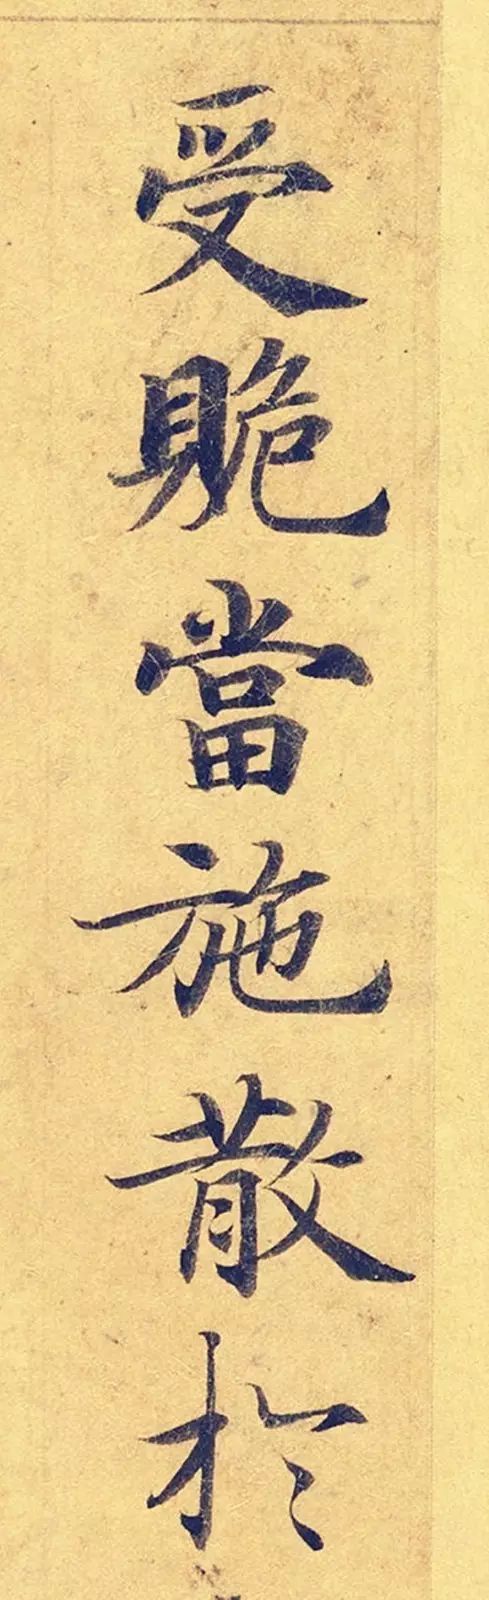 受贍當施散於